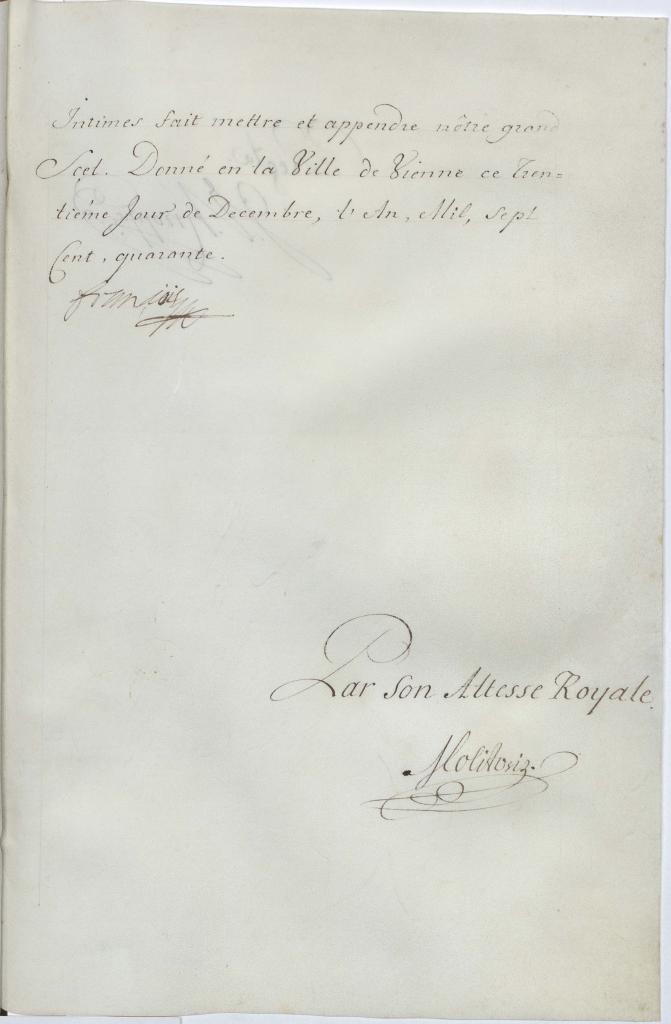 Intimes fait mettre et appendre nôtre grand
Scel. Donné en la Ville de Vienne ce Tren=
tiéme Jour de Decembre, l'An, Mil, sept
Cent, quarante.
françois
Par Son Altesse Royale.
Molitoris.